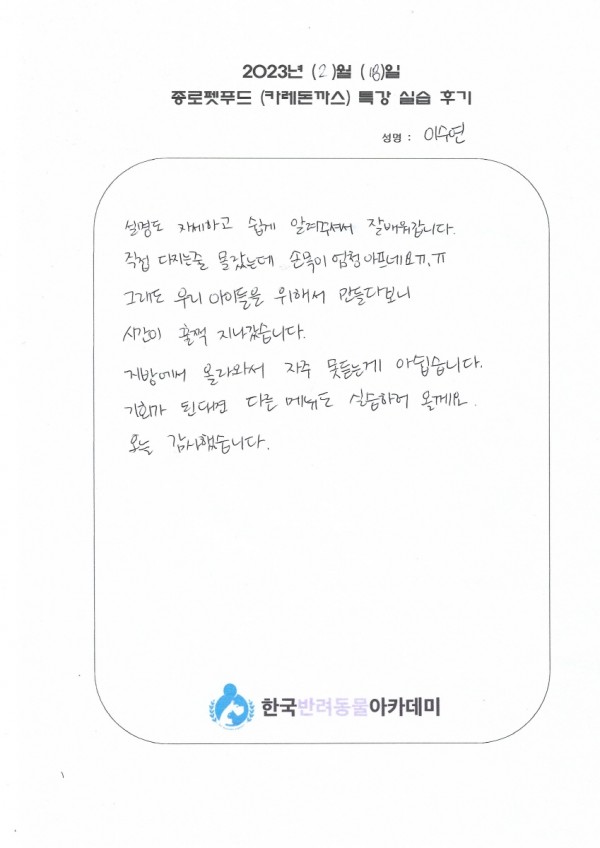 2023년 (2)월 (18)일
종로펫푸드 (카레돈까스) 특강 실습 후기
성명 : 이수연
설명도 자세하고 쉽게 알려주셔서 잘배워갑니다.
직접 다지는줄 몰랐는데 손목이 엄청아프네요ㅠ.ㅠ
그래도 우리 아이들을 위해서 만들다보니
시간이 훌쩍 지나갔습니다.
지방에서 올라와서 자주 못듣는게 아쉽습니다.
기회가 된대면 다른 메뉴도 실습하러 올께요.
오늘 감사했습니다.
한국반려동물아카데미